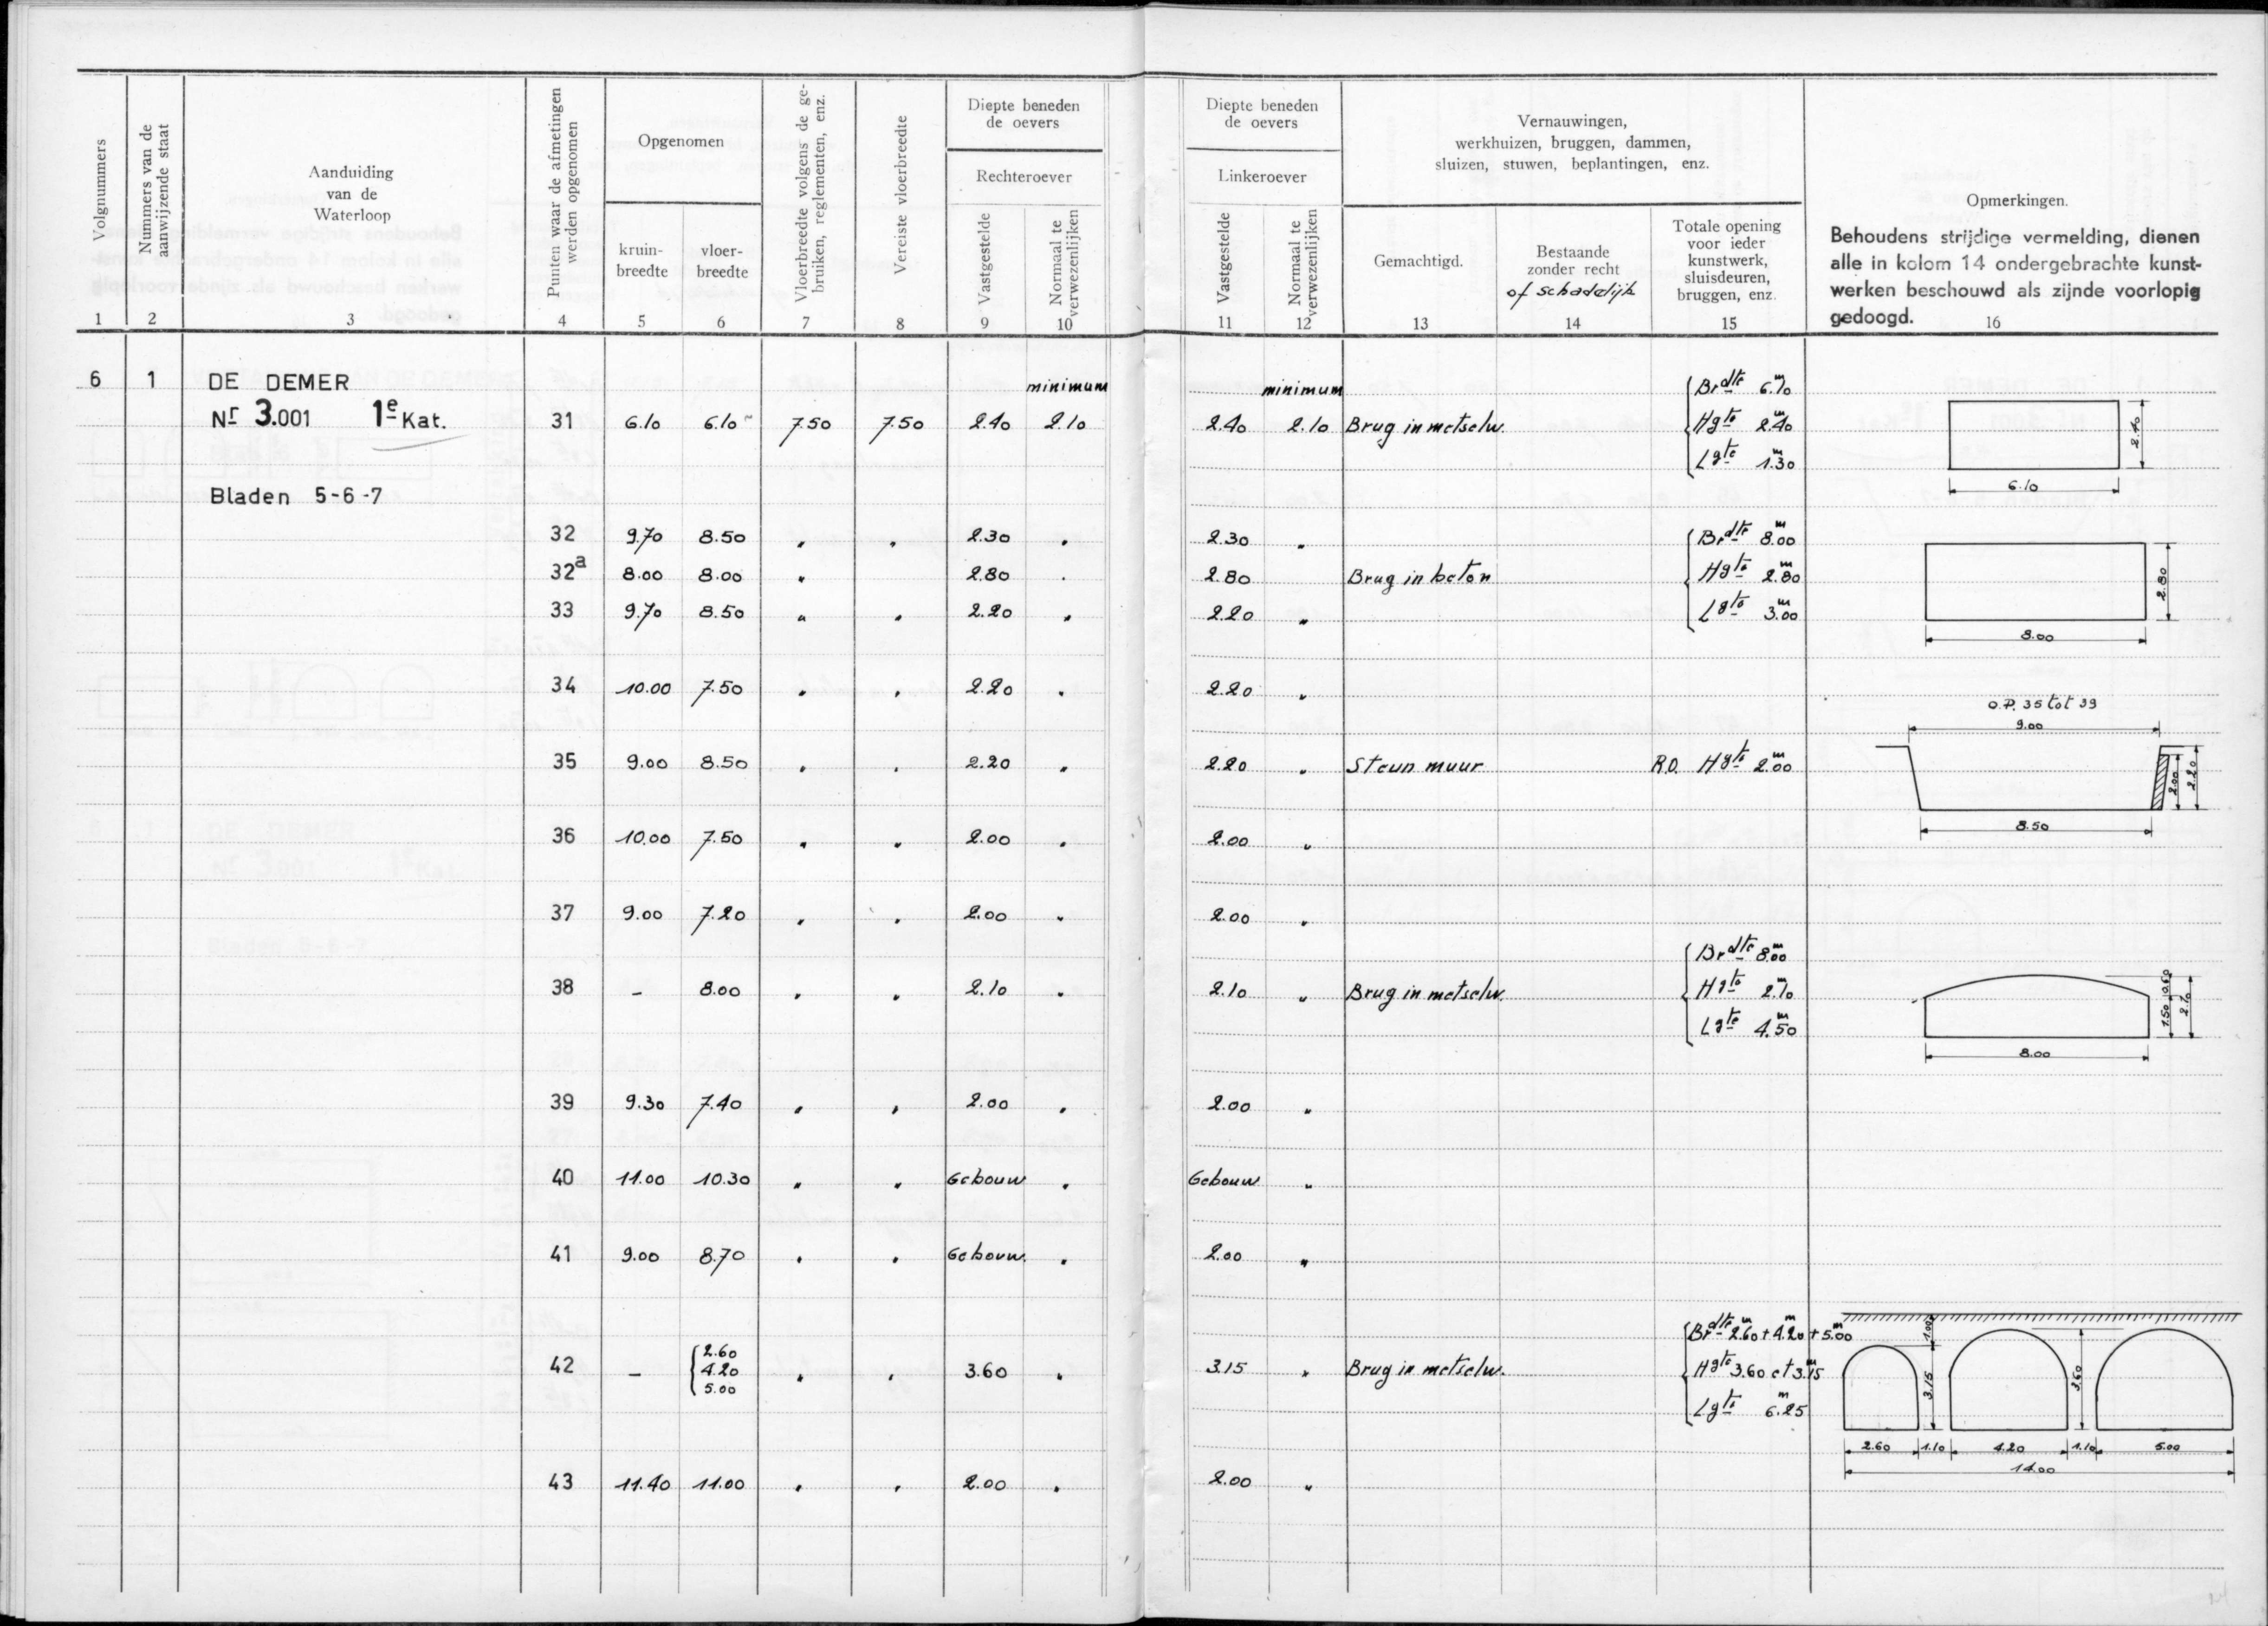 Volgnummers
Nummers van de aanwijzende staat
Aanduiding
van de
Waterloop
Punten waar de afmetingen werden opgenomen
Opgenomen
kruin-
breedte
vloer-
breedte
Vloerbreedte volgens de ge-
bruiken, reglementen, enz.
Vereiste vloerbreedte
Diepte beneden
de oevers
Rechteroever
Vastgestelde
Normaal te
verwezenlijken
Diepte beneden
de oevers
Linkeroever
Vastgestelde
Normaal te
verwezenlijken
Vernauwingen,
werkhuizen, bruggen, dammen,
sluizen, stuwen, beplantingen, enz.
Gemachtigd.
Bestaande
zonder recht
of schadelijk
Totale opening
voor ieder
kunstwerk,
sluisdeuren,
bruggen, enz.
Opmerkingen.
Behoudens strijdige vermelding, dienen
alle in kolom 14 ondergebrachte kunst-
werken beschouwd als zijnde voorlopig
gedoogd.
1 2 3 4 5 6 7 8 9 10 11 12 13 14 15 16
6 1 DE DEMER minimum minimum Brdte 6.10m
Nr 3.001 1e Kat. 31 6.10 6.10 7.50 7.50 2.40 2.10 2.40 2.10 Brug in metselw. Hgte 2.40m
Lgte 1.30m
2.40
6.10
Bladen 5-6-7
32 9.70 8.50 " " 2.30 " 2.30 " Brdte 8.00m
32a 8.00 8.00 " 2.80 " 2.80 Brug in beton Hgte 2.80m
33 9.70 8.50 " " 2.20 " 2.20 " Lgte 3.00m
2.80
8.00
34 10.00 7.50 " " 2.20 " 2.20 "
O.P. 35 tot 39
9.00
35 9.00 8.50 " " 2.20 " 2.20 " Steun muur R.O. Hgte 2.00m
2.00 2.20
8.50
36 10.00 7.50 " " 2.00 " 2.00 "
37 9.00 7.20 " " 2.00 " 2.00 "
Brdte 8.00m
38 - 8.00 " " 2.10 " 2.10 " Brug in metselw. Hgte 2.10m
Lgte 4.50m
0.60
1.50 2.10
8.00
39 9.30 7.40 " " 2.00 " 2.00 "
40 11.00 10.30 " " Gebouw " Gebouw "
41 9.00 8.70 " " Gebouw. " 2.00 "
Brdte 2.60m + 4.20m + 5.00m
42 - 2.60 4.20 5.00 " " 3.60 " 3.15 " Brug in metselw. Hgte 3.60 et 3.15m
Lgte 6.25m
1.00
3.15 3.60
2.60 1.10 4.20 1.10 5.00
14.00
43 11.40 11.00 " " 2.00 " 2.00 "